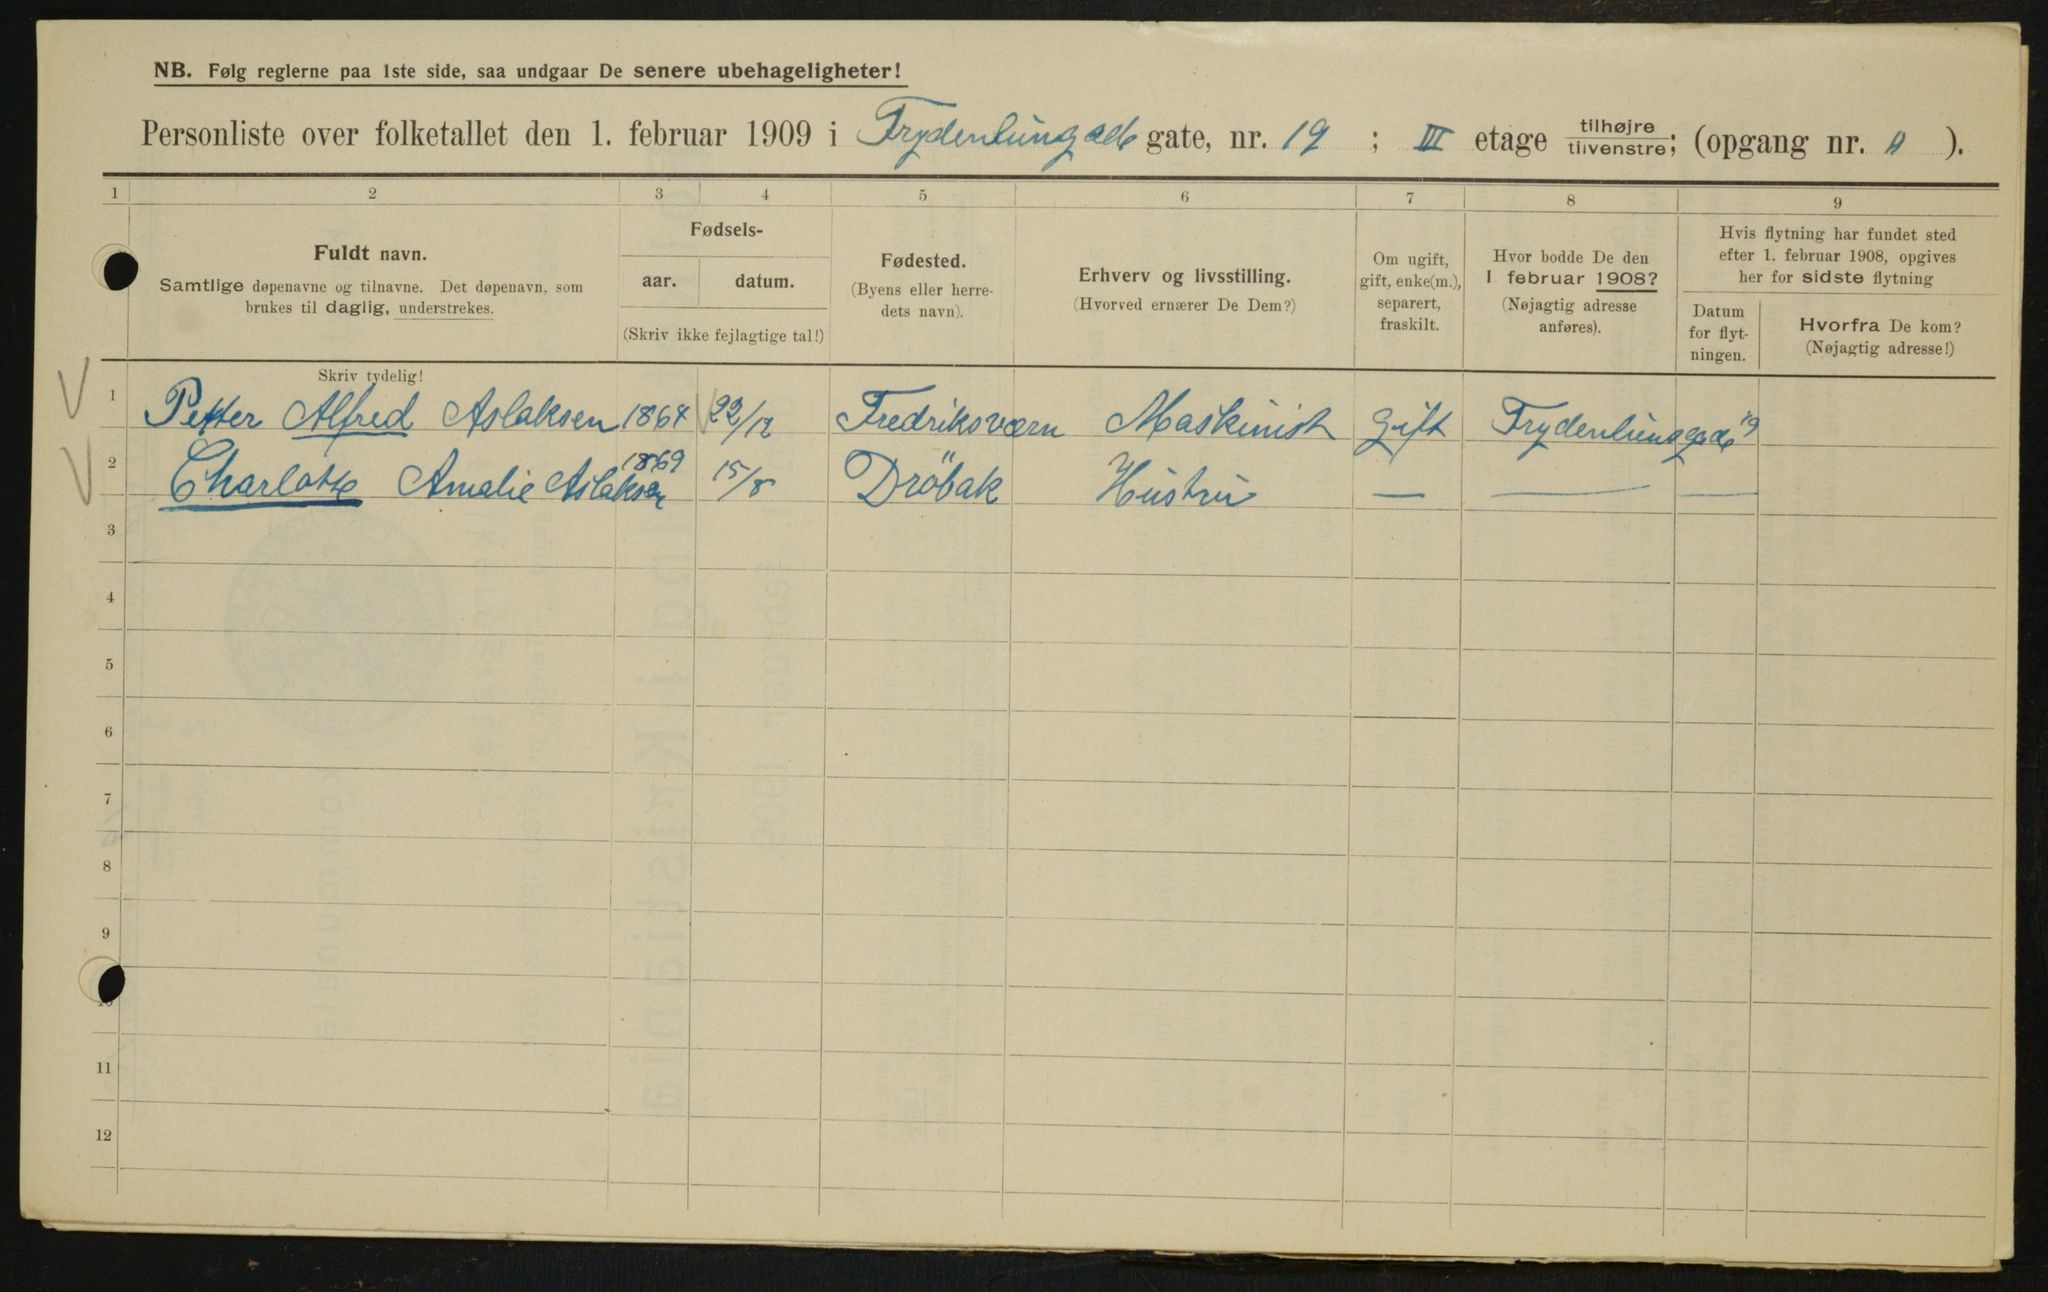 NB. Følg reglerne paa 1ste side, saa undgaar De senere ubehageligheter!
Personliste over folketallet den 1. februar 1909 i Frydenlungade gate, nr. 19 ; III etage tilhøjre tilvenstre; (opgang nr. A ).
1 2 3 4 5 6 7 8 9
Fuldt navn.
Samtlige døpenavne og tilnavne. Det døpenavn, som
brukes til daglig, understrekes.
Fødsels-
aar. datum.
(Skriv ikke fejlagtige tal!)
Fødested.
(Byens eller herre-
dets navn).
Erhverv og livsstilling.
(Hvorved ernærer De Dem?)
Om ugift,
gift, enke(m.),
separert,
fraskilt.
Hvor bodde De den
1 februar 1908?
(Nøjagtig adresse
anføres).
Hvis flytning har fundet sted
efter 1. februar 1908, opgives
her for sidste flytning
Datum
for flyt-
ningen.
Hvorfra De kom?
(Nøjagtig adresse!)
Skriv tydelig!
1 Petter Alfred Aslaksen 1864 22/12 Fredriksværn Maskinist gift Frydenlungade 19
2 Charlotte Amalie Aslaksen 1869 15/8 Dröbak Hustru — — —
3
4
5
6
7
8
9
10
11
12